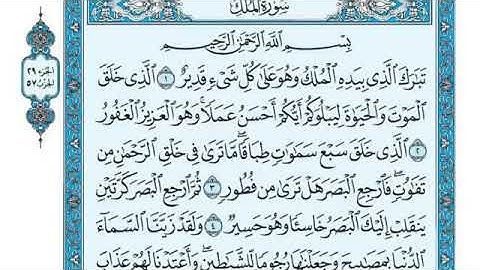 سُورَةُ المُلْكِ
الجزء ٢٩
الحزب ٥٧
بِسْمِ اللَّهِ الرَّحْمَٰنِ الرَّحِيمِ
تَبَارَكَ الَّذِي بِيَدِهِ الْمُلْكُ وَهُوَ عَلَىٰ كُلِّ شَيْءٍ قَدِيرٌ ١ الَّذِي خَلَقَ
الْمَوْتَ وَالْحَيَوٰةَ لِيَبْلُوَكُمْ أَيُّكُمْ أَحْسَنُ عَمَلًا ۚ وَهُوَ الْعَزِيزُ الْغَفُورُ
٢ الَّذِي خَلَقَ سَبْعَ سَمَٰوَٰتٍ طِبَاقًا ۖ مَّا تَرَىٰ فِي خَلْقِ الرَّحْمَٰنِ مِن
تَفَٰوُتٍ ۖ فَارْجِعِ الْبَصَرَ هَلْ تَرَىٰ مِن فُطُورٍ ٣ ثُمَّ ارْجِعِ الْبَصَرَ كَرَّتَيْنِ
يَنقَلِبْ إِلَيْكَ الْبَصَرُ خَاسِئًا وَهُوَ حَسِيرٌ ٤ وَلَقَدْ زَيَّنَّا السَّمَاءَ
الدُّنْيَا بِمَصَٰبِيحَ وَجَعَلْنَٰهَا رُجُومًا لِّلشَّيَٰطِينِ ۖ وَأَعْتَدْنَا لَهُمْ عَذَابَ